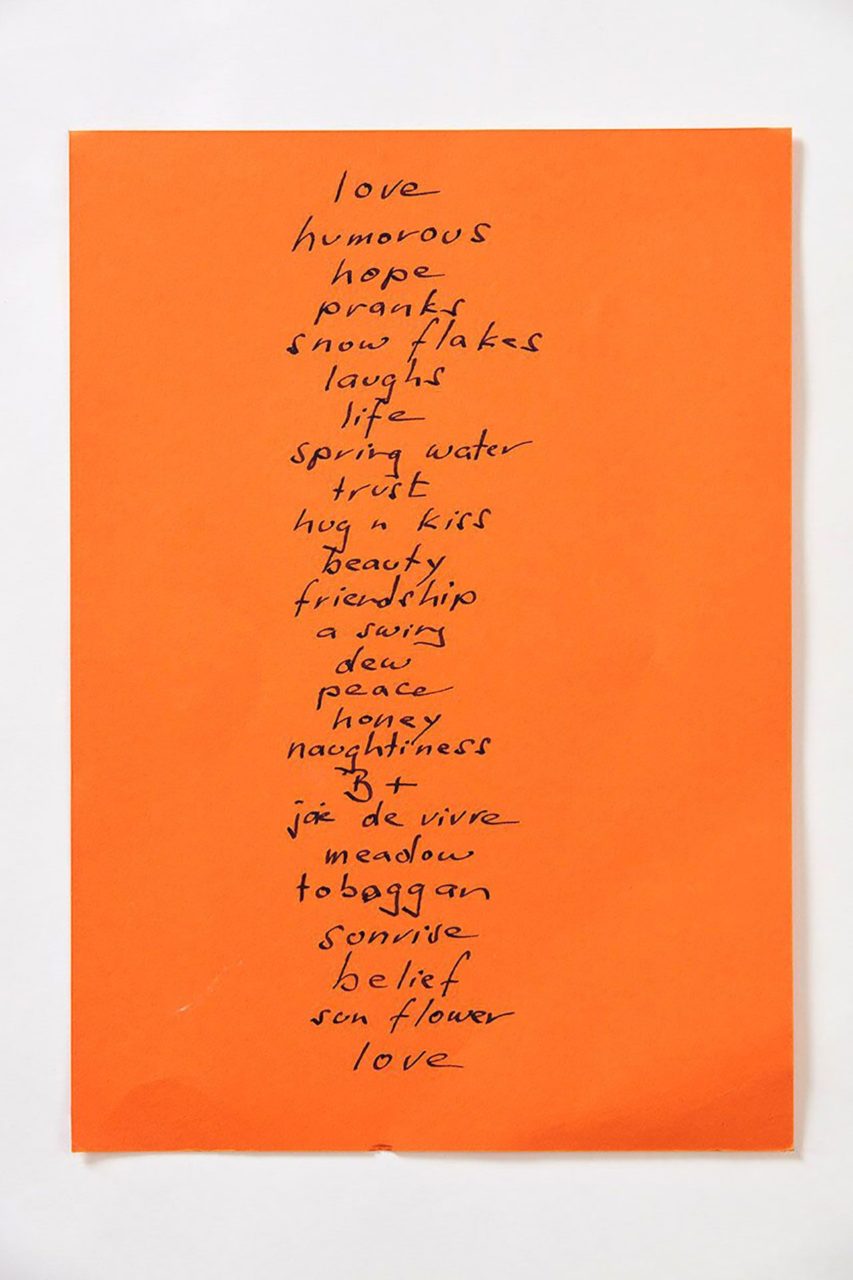 love
humorous
hope
pranks
snow flakes
laughs
life
spring water
trust
hug n kiss
beauty
friendship
a swing
dew
peace
honey
naughtiness
B+
joie de vivre
meadow
toboggan
sunrise
belief
sun flower
love